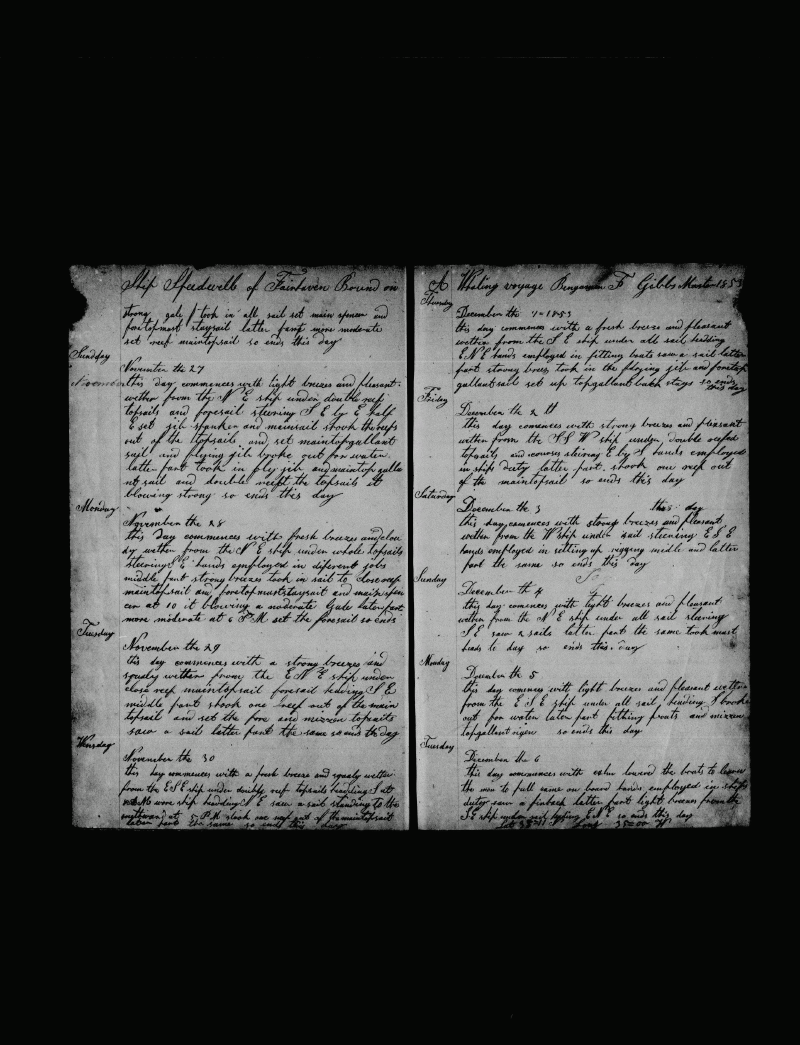 Ship Speedwell of Fairhaven Bound on
strong gale took in all sail set main spencer and
foretopmast staysail latter part more moderate
set reef maintopsail so ends this day
Sundday
November the 27
November this day commences with light breezes and pleasant
wether from the N E ship under double reef
topsails and foresail steering S E by E half
E set jib spanker and mainsail shook the reefs
out of the topsails and set maintopgallant
sail and flying jib broke out for water
latter part took in fly jib and maintop galla
nt sail and double reeft the topsails it
blowing strong so ends this day
Monday
November the 28
this day commences with fresh breezes and clou
dy wether from the N E ship under whole topsails
steering S E hands employed in diferent jobs
middle part strong breezes took in sail to close reef
maintopsail and foretopmaststaysail and main spen
cer at 10 it blowing a moderate Gale laterpart
more moderate at 6 P M set the foresail so ends
Tuesday
November the 29
this day commences with a strong breezes and
squaly wether from the E N E ship under
close reef maintopsail foresail heading S E
middle part shook one reef out of the main
topsail and set the fore and mizzen topsails
saw a sail latter part the same so ends the day
Wensday
November the 30
this day commences with a fresh breeze and squaly wether
from the E S E ship under doubly reef topsails heading S at
wore ship heading E saw a sail standing to the
at 5 P M shook one reef out of the maintopsail
later part the same so ends this day
A Whaling voyage Bengamin F Gibbs Master 1853
Thursday
December the 1 1853
this day commences with a fresh breeze and pleasant
wether from the S E ship under all sail heading
E N E hands employed in fitting boats saw a sail latter
part strong breez took in the flying jib and foretop
gallantsail set up topgallant back stays so ends
this day
Friday
December the 2
this day commences with strong breezes and pleasant
wether from the S S W ship under double reefed
topsails and courses steering E by S hands employed
in ship duty latter part shook one reef out
of the maintopsail so ends this day
Saturday
December the 3 this day
this day comences with strong breezes and pleasant
wether from the W ship under sail steering E S E
hands employed in setting up rigging midle and latter
part the same so ends this day
Sunday
December the 4
this day comences with light breezes and pleasant
wether from the N E ship under all sail steering
S E saw 2 sails latter part the same took mast
heads to day so ends this day
Monday
December the 5
this day comences with light breezes and pleasant wether
from the E S E ship under all sail heading S broke
out for water later part fitting and mizzen
topgallent rigen so ends this day
Tuesday
December the 6
this day commences with calm lowerd the boats to learn
the men to pull came on board hands employed in ships
duty saw a finback latter part light breezes from the
S E ship under sail heading E N E so ends this day